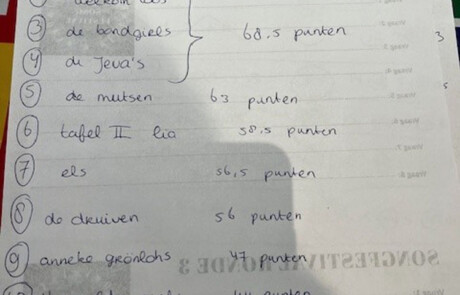 ③ de bandgiels 68.5 punten 3
④ de Jeva's
⑤ de mutsen 63 punten
⑥ tafel II lia 58.5 punten
⑦ els 56,5 punten
⑧ de druiven 56 punten
⑨ anneke grönlohs 47 punten
SONGFESTIVAL RONDE 3
punten